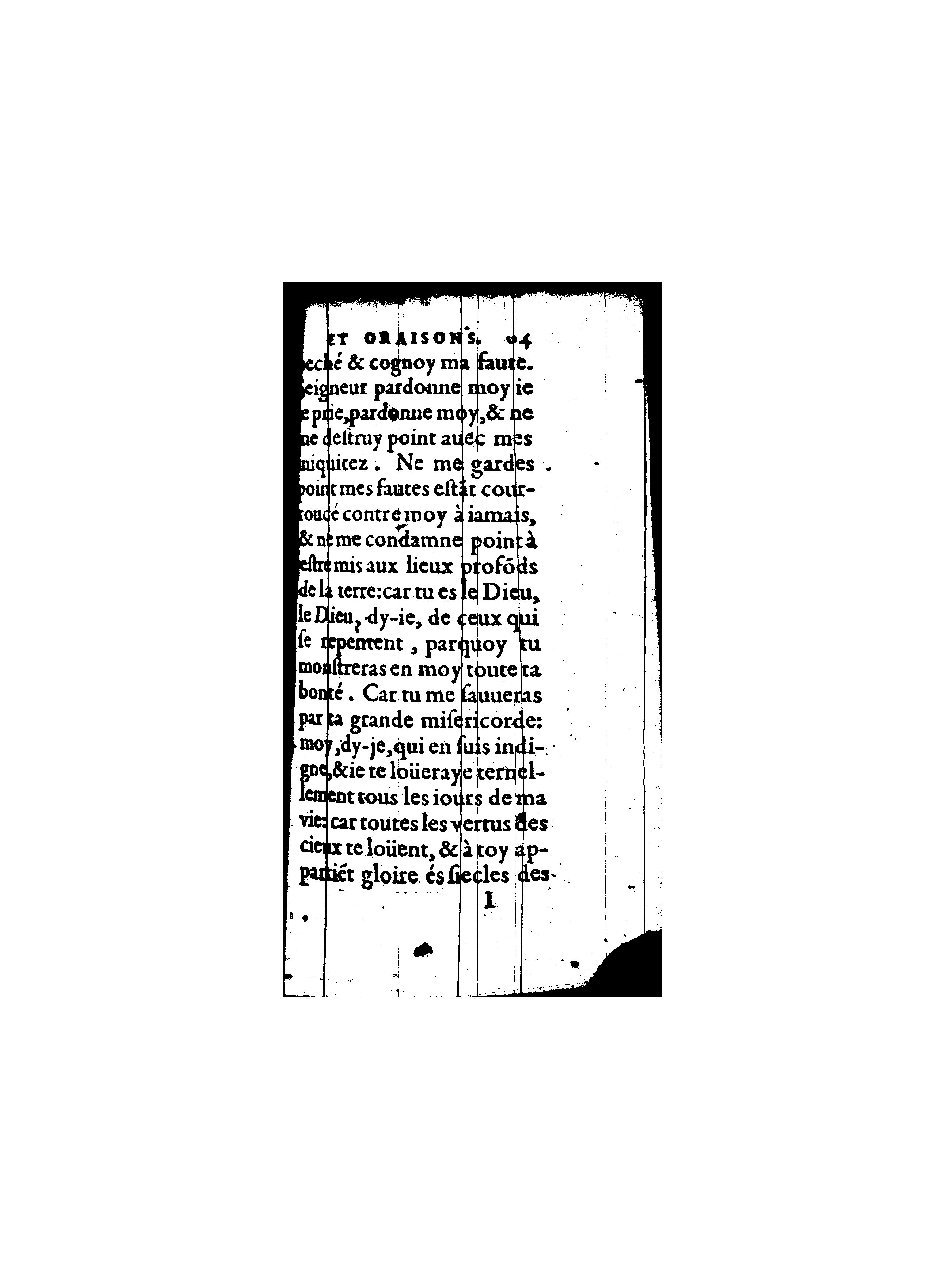 ET ORAISONS. 64
peché & cognoy ma faute.
Seigneur pardonne moy ie
te prie, pardonne moy, & ne
me deſtruy point auec mes
iniquitez. Ne me gardes
point mes fautes eſtãt cour-
roucé contre moy à iamais,
& ne me condamne point à
eſtre mis aux lieux profõds
de la terre: car tu es le Dieu,
le Dieu, dy-ie, de ceux qui
ſe repentent, parquoy tu
monſtreras en moy toute ta
bonté. Car tu me ſauueras
par ta grande miſericorde:
moy, dy-je, qui en ſuis indi-
gne, & ie te loüeraye ternel-
lement tous les iours de ma
vie: car toutes les vertus des
cieux te loüent, & à toy ap-
partiẽt gloire és ſiecles des
I